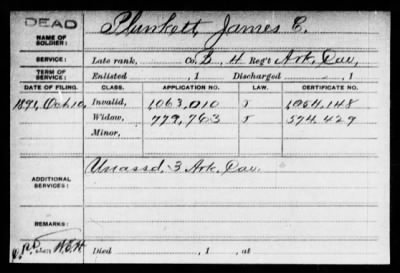 DEAD
NAME OF SOLDIER: Plunkett, James C.
SERVICE: Late rank, Co. B, 4 Reg't Ark. Cav,
TERM OF SERVICE: Enlisted , 1 Discharged , 1
DATE OF FILING. CLASS. APPLICATION NO. LAW. CERTIFICATE NO.
1891, Oct 10, Invalid, 1063,010 1054,148
Widow, 779,763 574,427
Minor,
ADDITIONAL SERVICES: Unassd. 3 Ark. Cav.
REMARKS:
Died , 1 , at